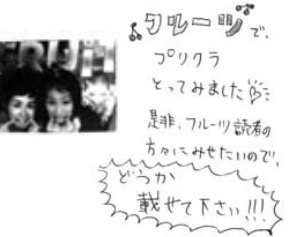 フルーツで、
プリクラ
とってみました
是非、フルーツ読者の
方々にみせたいので、
どうか
載せて下さい!!!